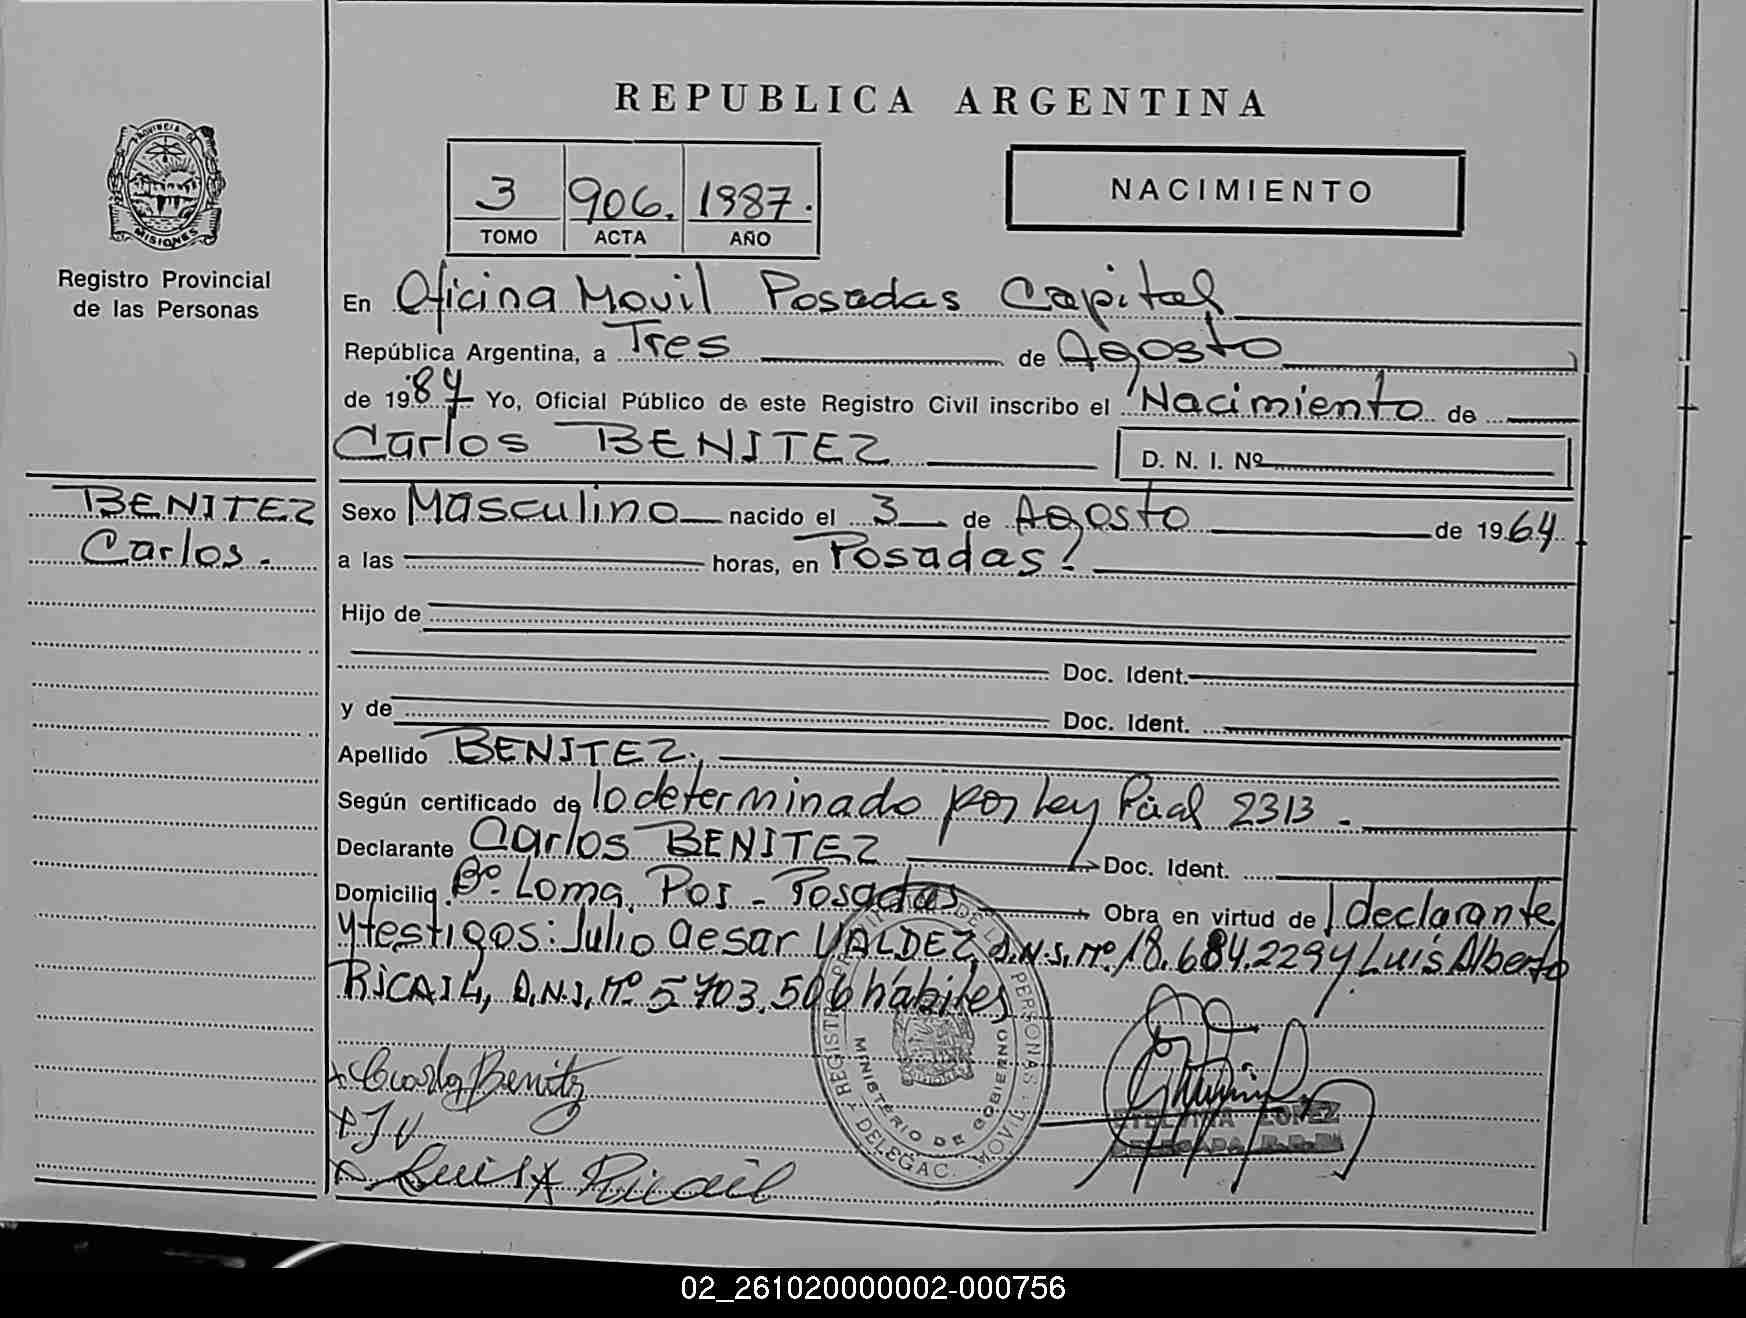 REPUBLICA ARGENTINA
PROVINCIA DE MISIONES
Registro Provincial
de las Personas
3 906. 1987.
TOMO ACTA AÑO
NACIMIENTO
En Oficina Movil Posadas Capital
República Argentina, a Tres de Agosto
de 1987 Yo, Oficial Público de este Registro Civil inscribo el Nacimiento de
Carlos BENITEZ D. N. I. Nº
BENITEZ
Carlos.
Sexo Masculino nacido el 3 de Agosto de 1964
a las horas, en Posadas.
Hijo de
Doc. Ident.
y de Doc. Ident.
Apellido BENITEZ.
Según certificado de lo determinado por ley Pcial 2313.
Declarante Carlos BENITEZ Doc. Ident.
Domicilio Bº. Loma Poi - Posadas Obra en virtud de declarante
y testigos: Julio Cesar VALDEZ, D.N.I. Nº 18.684.229 y Luis Alberto
RICAIL, D.N.I. Nº 5.703.506 hábiles
REGISTRO PROVINCIAL DE LAS PERSONAS
MINISTERIO DE GOBIERNO
DELEGAC. MOVIL
Carlos Benitz
J V
Luis A Ricail
LOPEZ
02_261020000002-000756